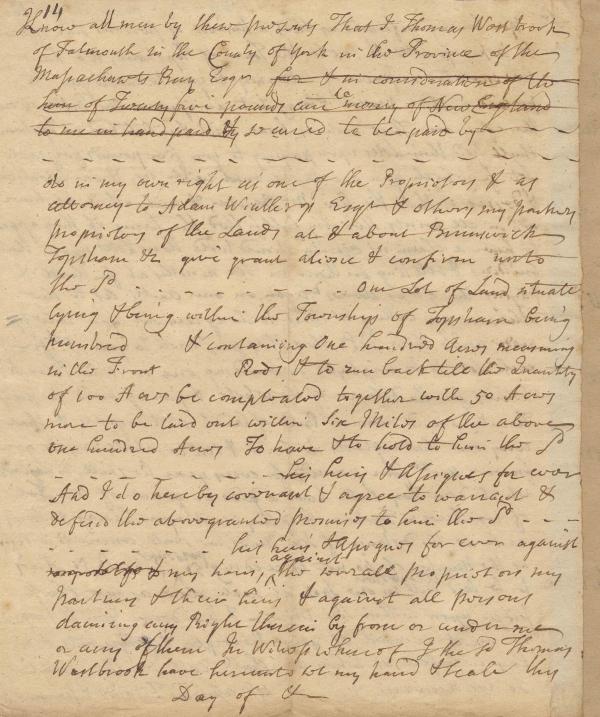 14
Know all men by these presents That I Thomas Westbrook
of Falmouth in the County of York in the Province of the
Massachusets Bay Esqr for & in consideration of the
sum of Twenty five pounds money of New England
to me in hand paid by secured to be paid by
do in my own right as one of the Proprietors & as
attorney to Adam Winthrop Esqr & others my partners
proprietors of the Lands at & about Brunswick
Topsham &c give grant aliene & confirm unto
the Sd - - - - - - - - - - One Lot of Land situate
lying & being within the Township of Topsham being
numbred & containing One hundred Acres measuring
in the Front Rods & to run back till the Quantity
of 100 Acres be compleated together with 50 Acres
more to be laid out within Six Miles of the above
one hundred Acres To have & to hold to him the Sd
- - - - - - - - - - his heirs & Assignes for ever
And I do hereby covenant & agree to warrant &
defend the abovegranted premises to him the Sd - - - -
- - - - - - his heirs & Assignes for ever against
my heirs, against the severall proprietors my
partners & their heirs & against all persons
claiming any Right therein by from or under me
or any of them In Witness whereof I the Sd Thomas
Westbrook have hereunto set my hand & seale this
Day of &c